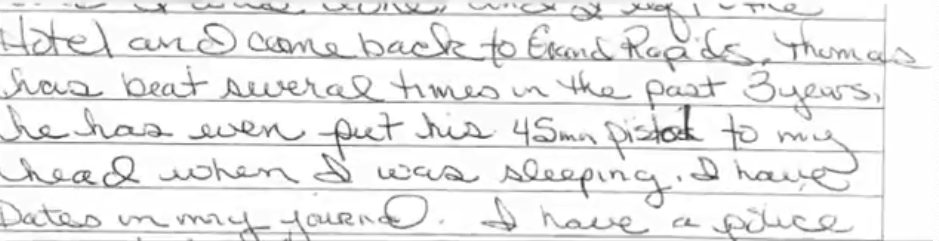 and I left the
Hotel and came back to Grand Rapids. Thomas
has beat several times in the past 3 years,
he has even put his 45mm pistol to my
head when I was sleeping. I have
Dates in my journal. I have a police